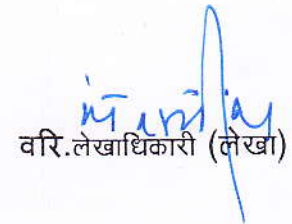 वरि.लेखाधिकारी (लेखा)